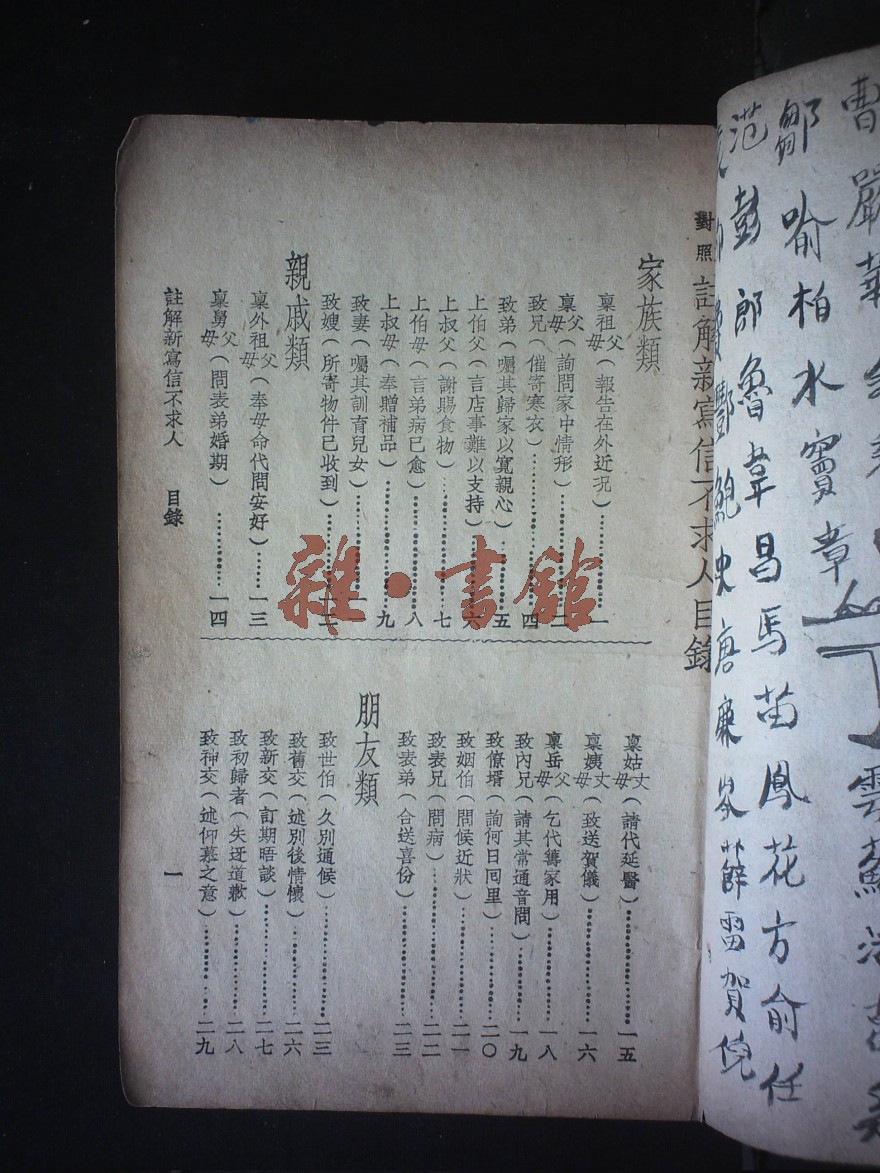 對照 註解新寫信不求人目錄
家族類
稟祖父母(報告在外近況)一
稟父母(詢問家中情形)
致兄(催寄寒衣)四
致弟(囑其歸家以寬親心)五
上伯父(言店事難以支持)六
上叔父(謝賜食物)七
上伯母(言弟病已愈)八
上叔母(奉贈補品)九
致妻(囑其訓育兒女)
致嫂(所寄物件已收到)
親戚類
稟外祖父母(奉母命代問安好)一三
稟舅父母(問表弟婚期)一四
稟姑丈母(請代延醫)一五
稟姨丈母(致送賀儀)一六
稟岳父母(乞代籌家用)一八
致內兄(請其常通音問)一九
致僚壻(詢何日回里)二〇
致姻伯(問候近狀)二一
致表兄(問病)二二
致表弟(合送喜份)二三
朋友類
致世伯(久別通候)二三
致舊交(述別後情懷)二六
致新交(訂期晤談)二七
致初歸者(失迓道歉)二八
致神交(述仰慕之意)二九
註解新寫信不求人 目錄
一
雜·書館
曹嚴華
雲蘇
鄒喻柏水竇章
范彭郎魯韋昌馬苗鳳花方俞任
鄷鮑史唐廉岑薛雷賀倪